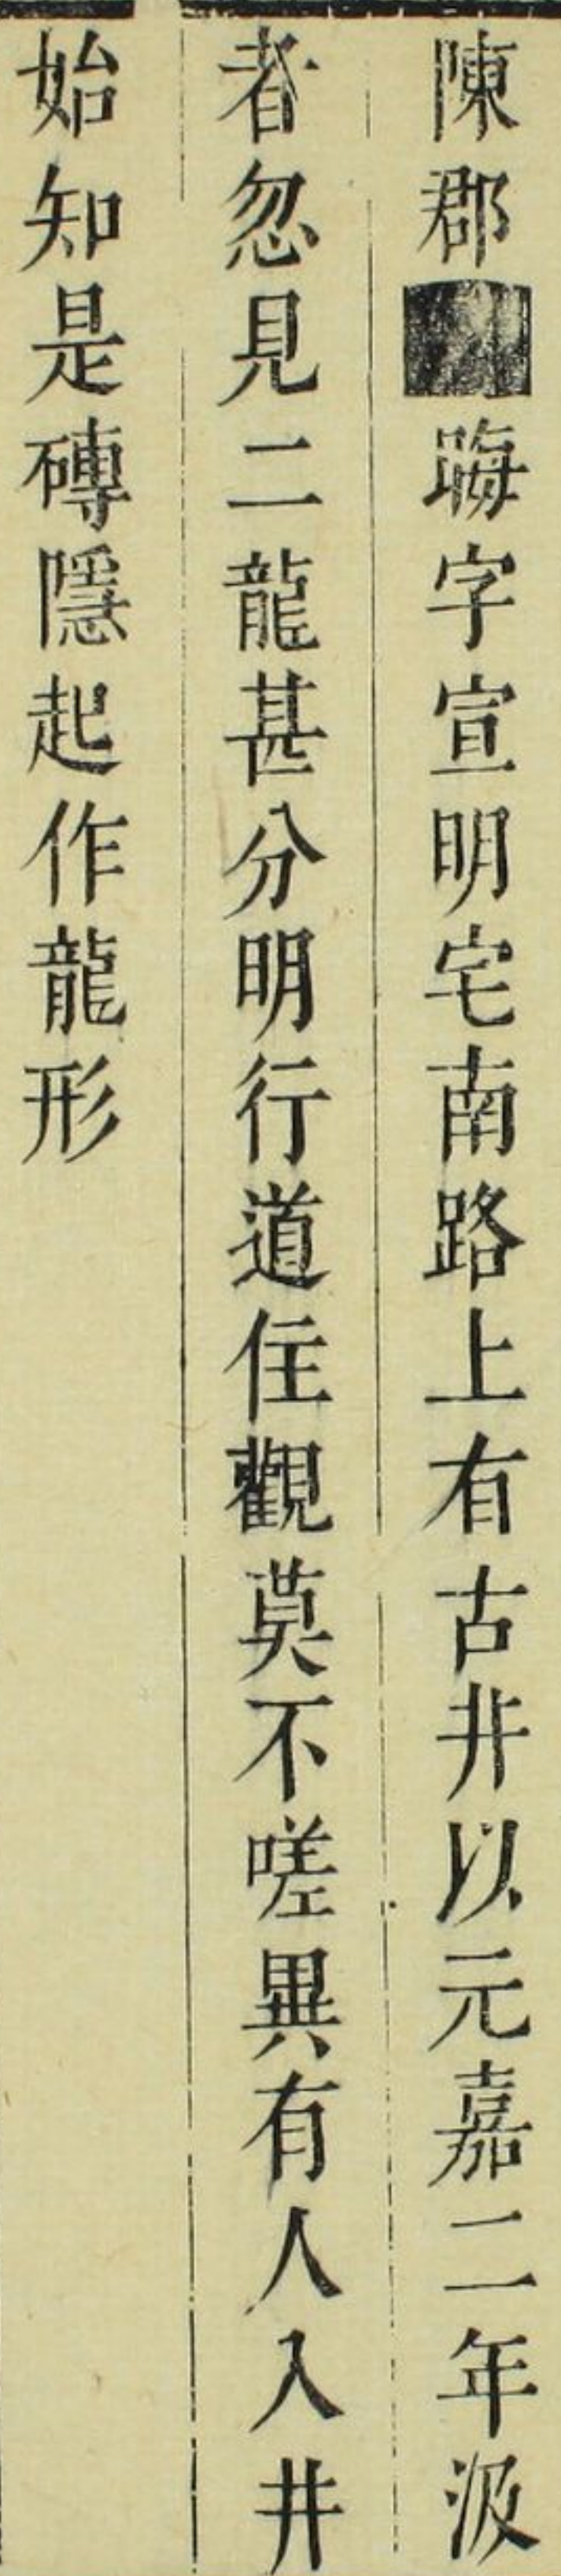 陳郡■晦字宣明宅南路上有古井以元嘉二年汲
者忽見二龍甚分明行道住觀莫不嗟異有人入井
始知是磚隱起作龍形